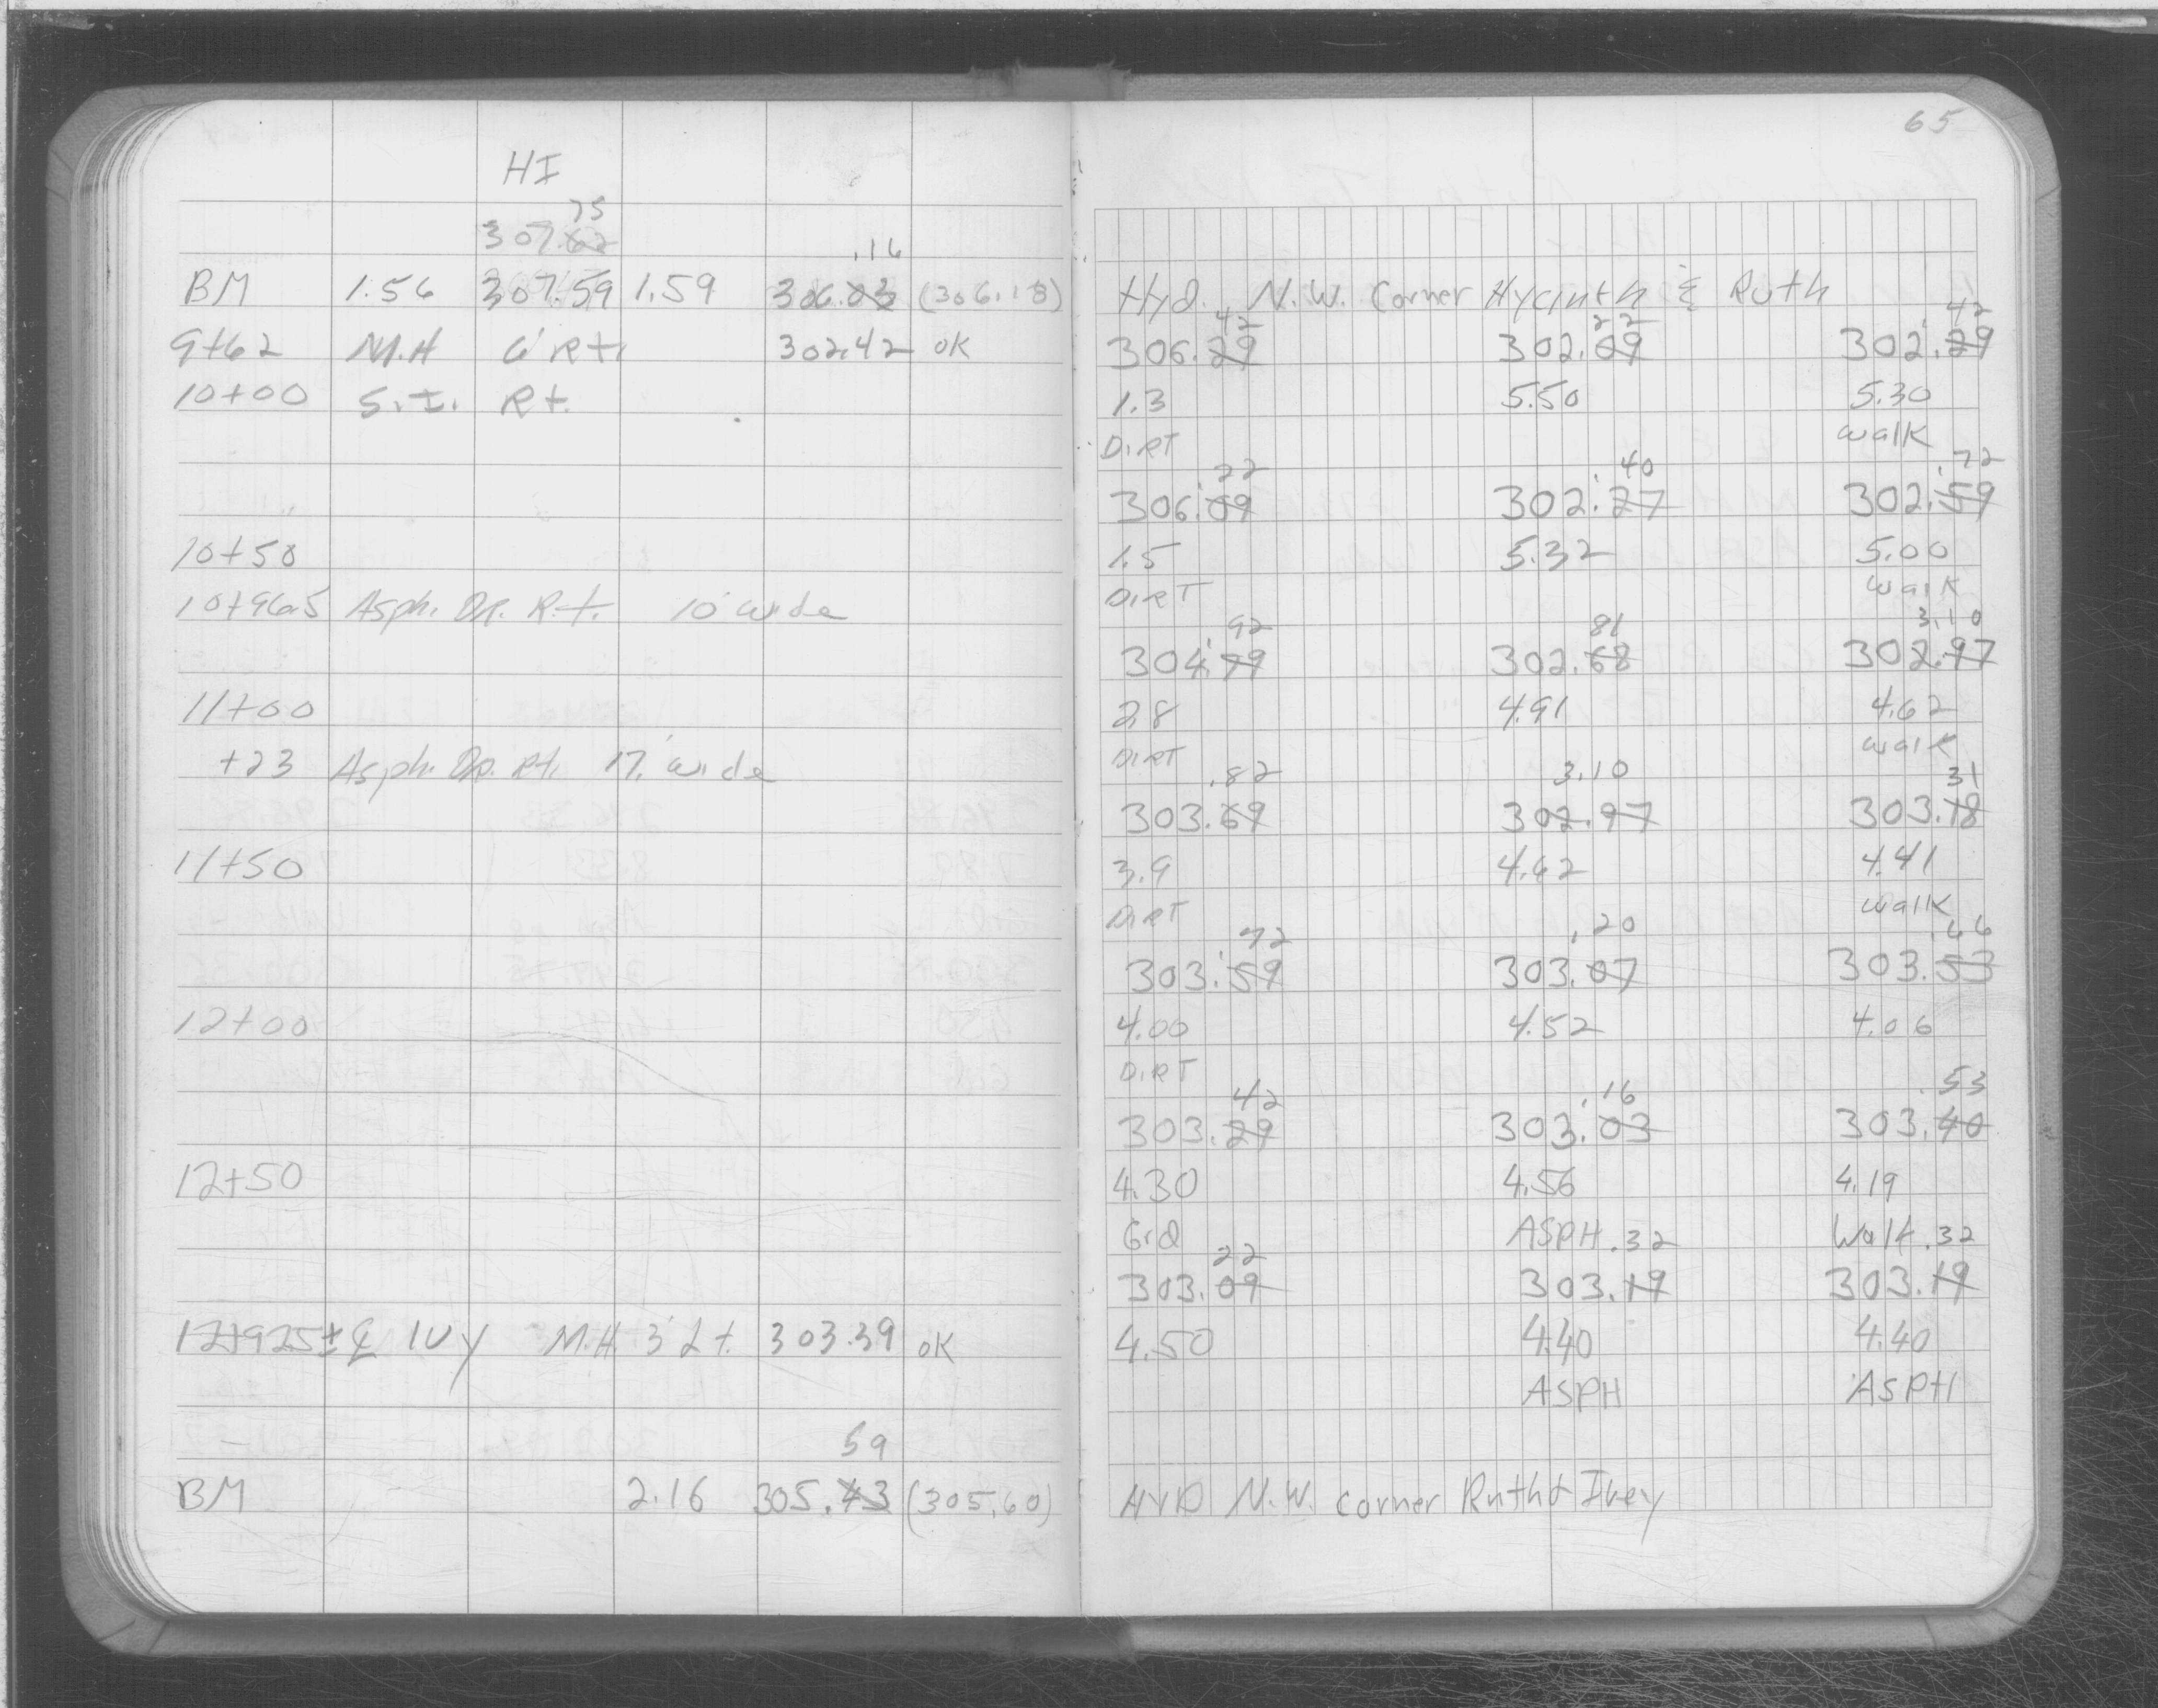 65
HI
75
307.62
.16
BM 1.56 307.59 1.59 306.03 (306.18)
9+62 M.H 6' Rt. 302.42 OK
10+00 S.I. Rt.
10+50
10+96.5 Asph. Dr. R.t. 10' wide
11+00
+23 Asph. Dr. Rt. 17' wide
11+50
12+00
12+50
12+925± ℄ IVY M.H. 3' Lt. 303.39 OK
59
BM 2.16 305.43 (305.60)
Hyd. N.W. Corner Hycinth & Ruth
.42 22 .42
306.29 302.09 302.29
1.3 5.50 5.30
DIRT walk
.22 .40 .72
306.09 302.27 302.59
1.5 5.32 5.00
DIRT walk
.92 81 3.10
304.79 302.68 302.97
2.8 4.91 4.62
DIRT walk
.82 3.10 31
303.69 302.97 303.18
3.9 4.62 4.41
DIRT walk
.72 .20 .66
303.59 303.07 303.53
4.00 4.52 4.06
DIRT
42 .16 .53
303.29 303.03 303.40
4.30 4.56 4.19
Grd ASPH .32 Walk .32
22
303.09 303.19 303.19
4.50 4.40 4.40
ASPH ASPH
HYD N.W. Corner Ruth & Ivey